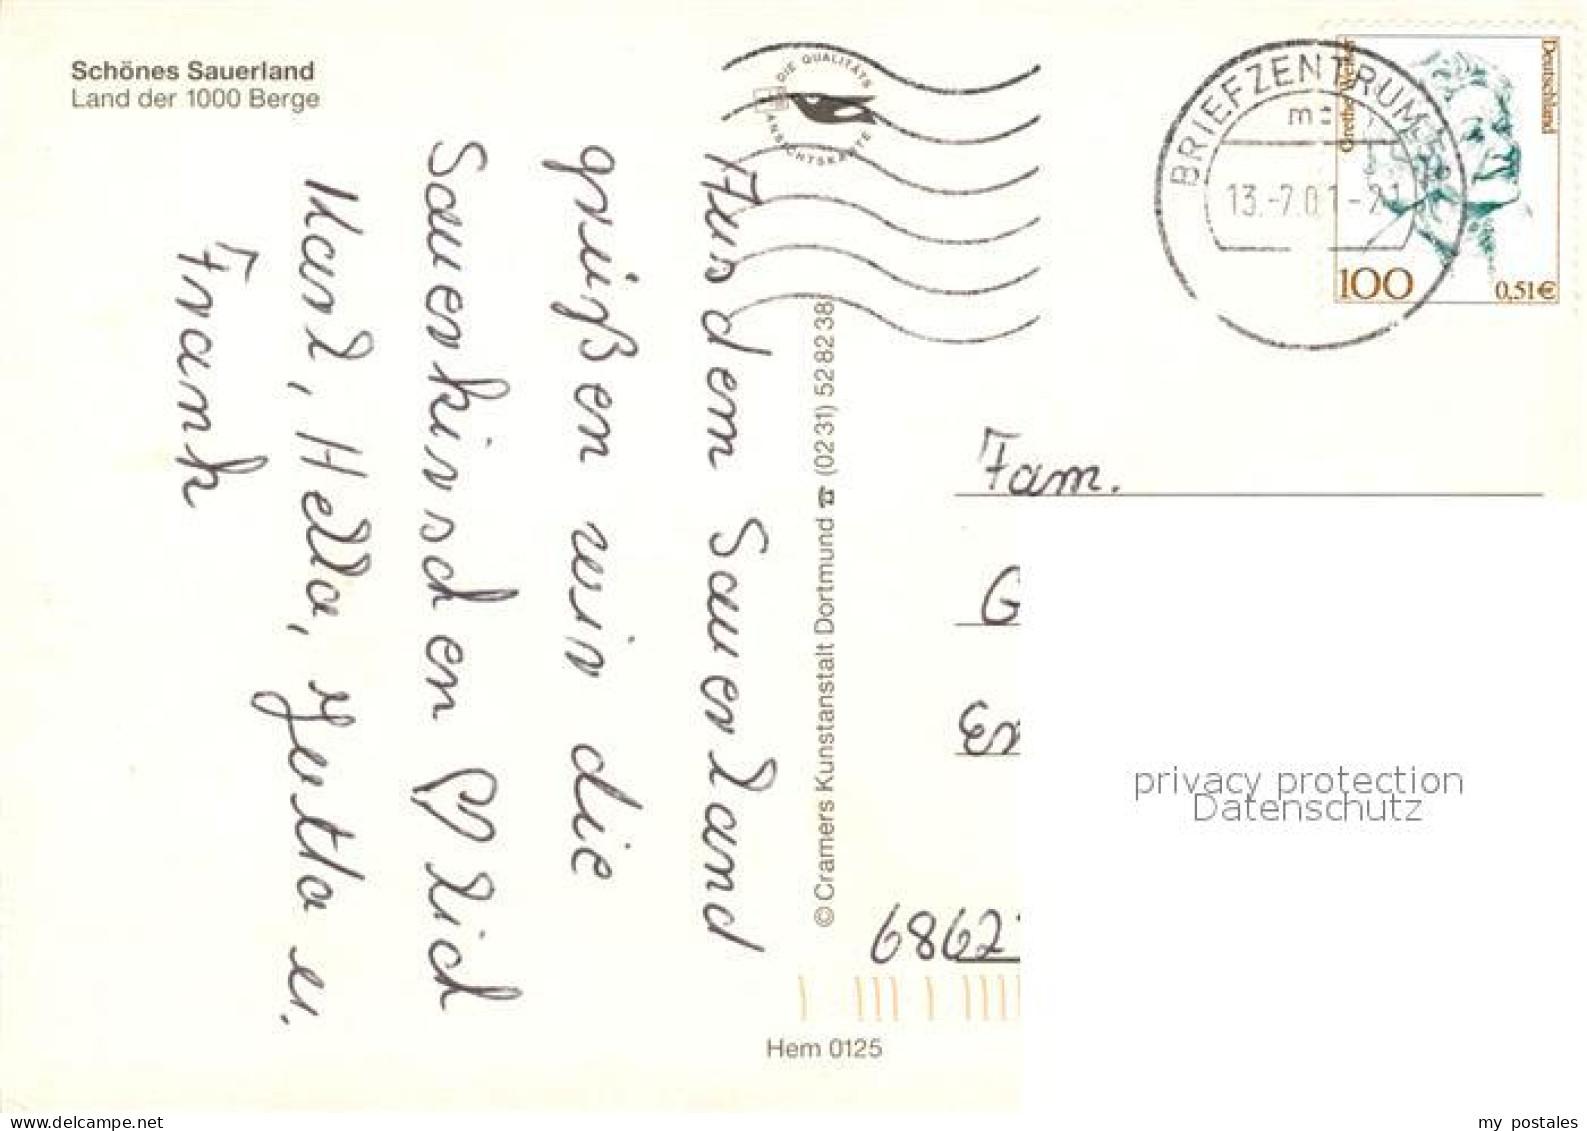 Schönes Sauerland
Land der 1000 Berge
DIE QUALITÄTS
ANSICHTSKARTE
BRIEFZENTRUM
13.-7.01-21
Grethe Weiser
Deutschland
100
0,51€
Aus dem Sauerland
grüßen wir die
Sauerkirschen ♡lich
Karl, Hella, Jutta u.
Frank
© Cramers Kunstanstalt Dortmund ☎ (02 31) 52 82 38
Fam.
G
En
6862
Hem 0125
privacy protection
Datenschutz
delcampe.net
my postales